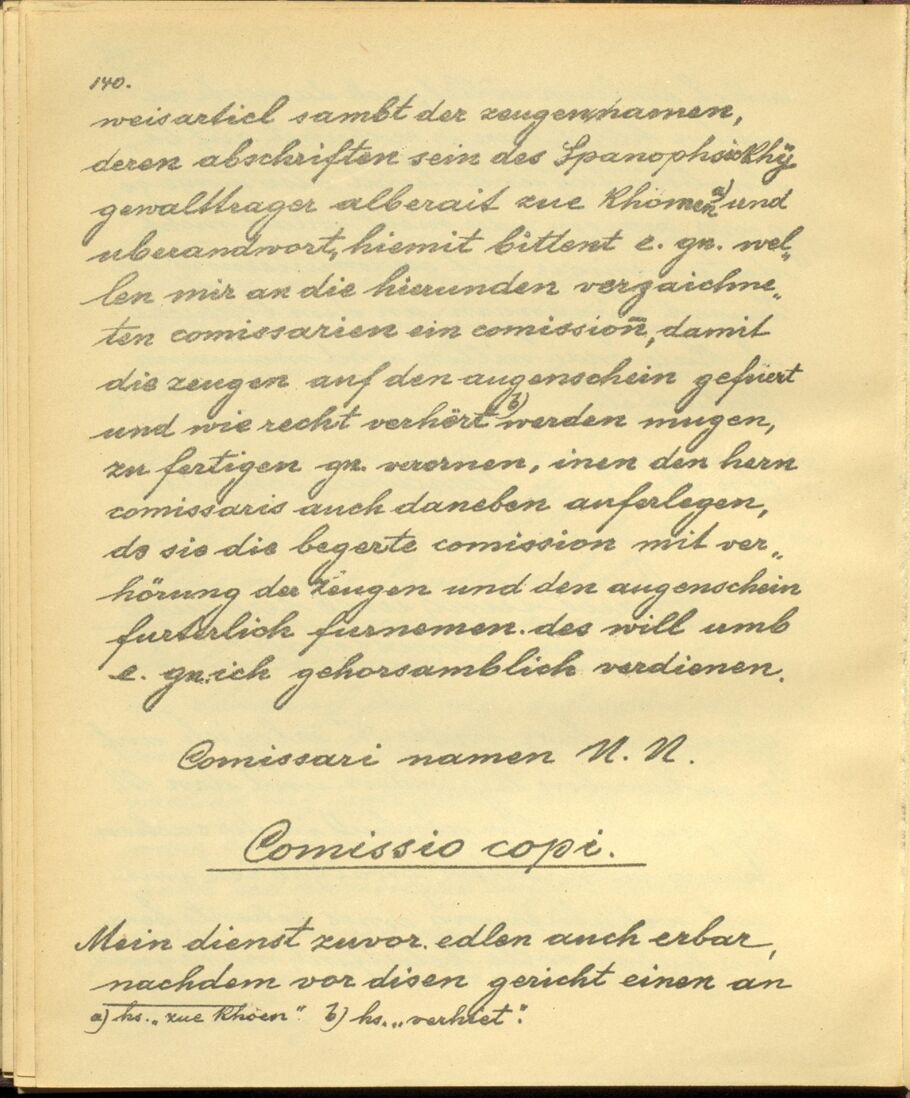 140.
weisarticl sambt der zeugen namen,
deren abschriften sein des Spanophsickhÿ
gewalttrager alberait zue Khomen a) und
uberandwort, hiemit bittent e. gn. wel„
len mir an die hierunden verzaichne„
ten comissarien ein comission̄, damit
die zeugen auf den augenschein gefuert
und wie recht verhört b) werden mugen,
zu fertigen gn. verornen, inen den hern
comissaris auch daneben auferlegen,
ds sie die begerte comission mit ver„
hörung der Zeugen und den augenschein
furderlich furnemen. des will umb
e. gn. ich gehorsamblich verdienen.
Comissari namen N. N.
Comissio copi.
Mein dienst zuvor. edlen auch erbar,
nachdem vor disen gericht einen an
a) hs. „zue Khoen". b) hs. „verhiet".